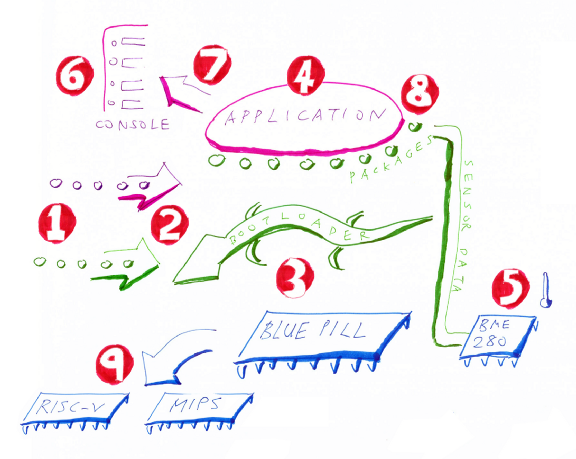 6
7
4
8
CONSOLE
APPLICATION
PACKAGES
SENSOR DATA
1
2
BOOTLOADER
3
5
BLUE PILL
BME
280
9
RISC-V
MIPS